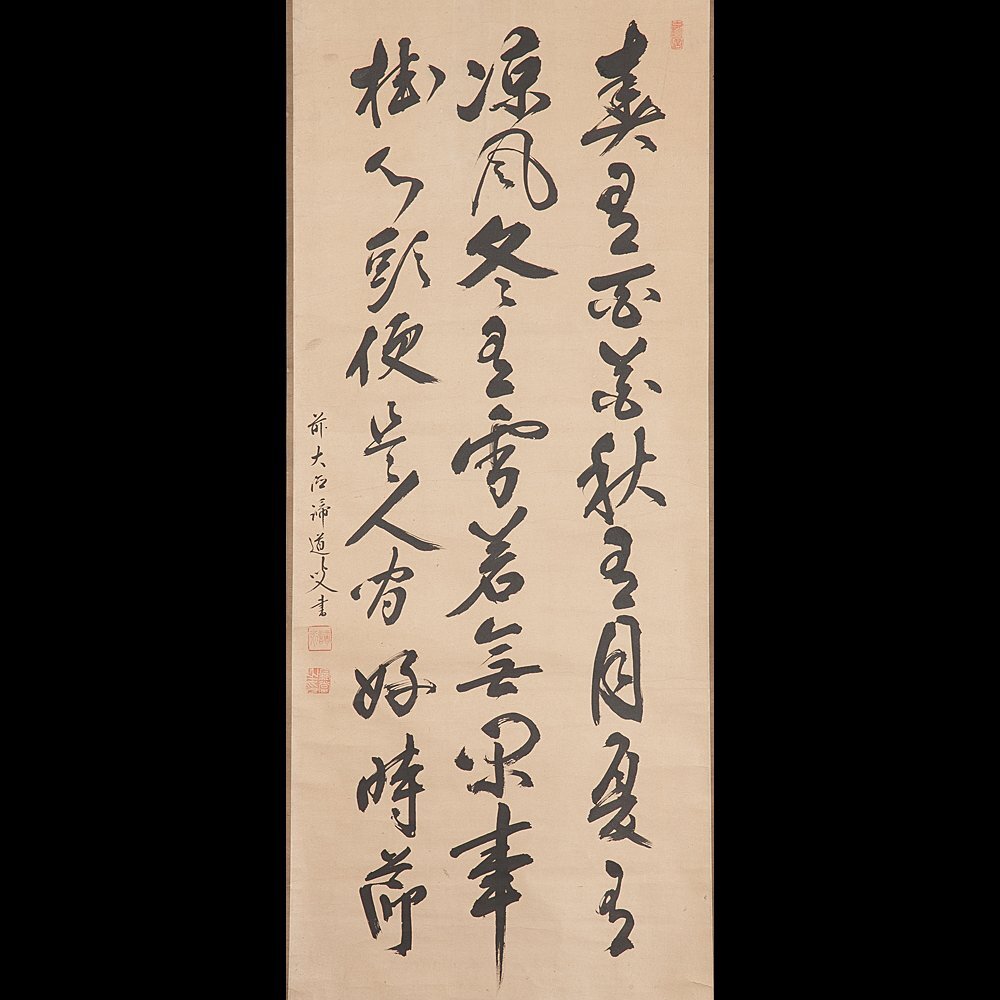 春有百花秋有月夏有
凉風冬有雪若無閑事
挂心頭便是人間好時節
前大徳諦道叟書